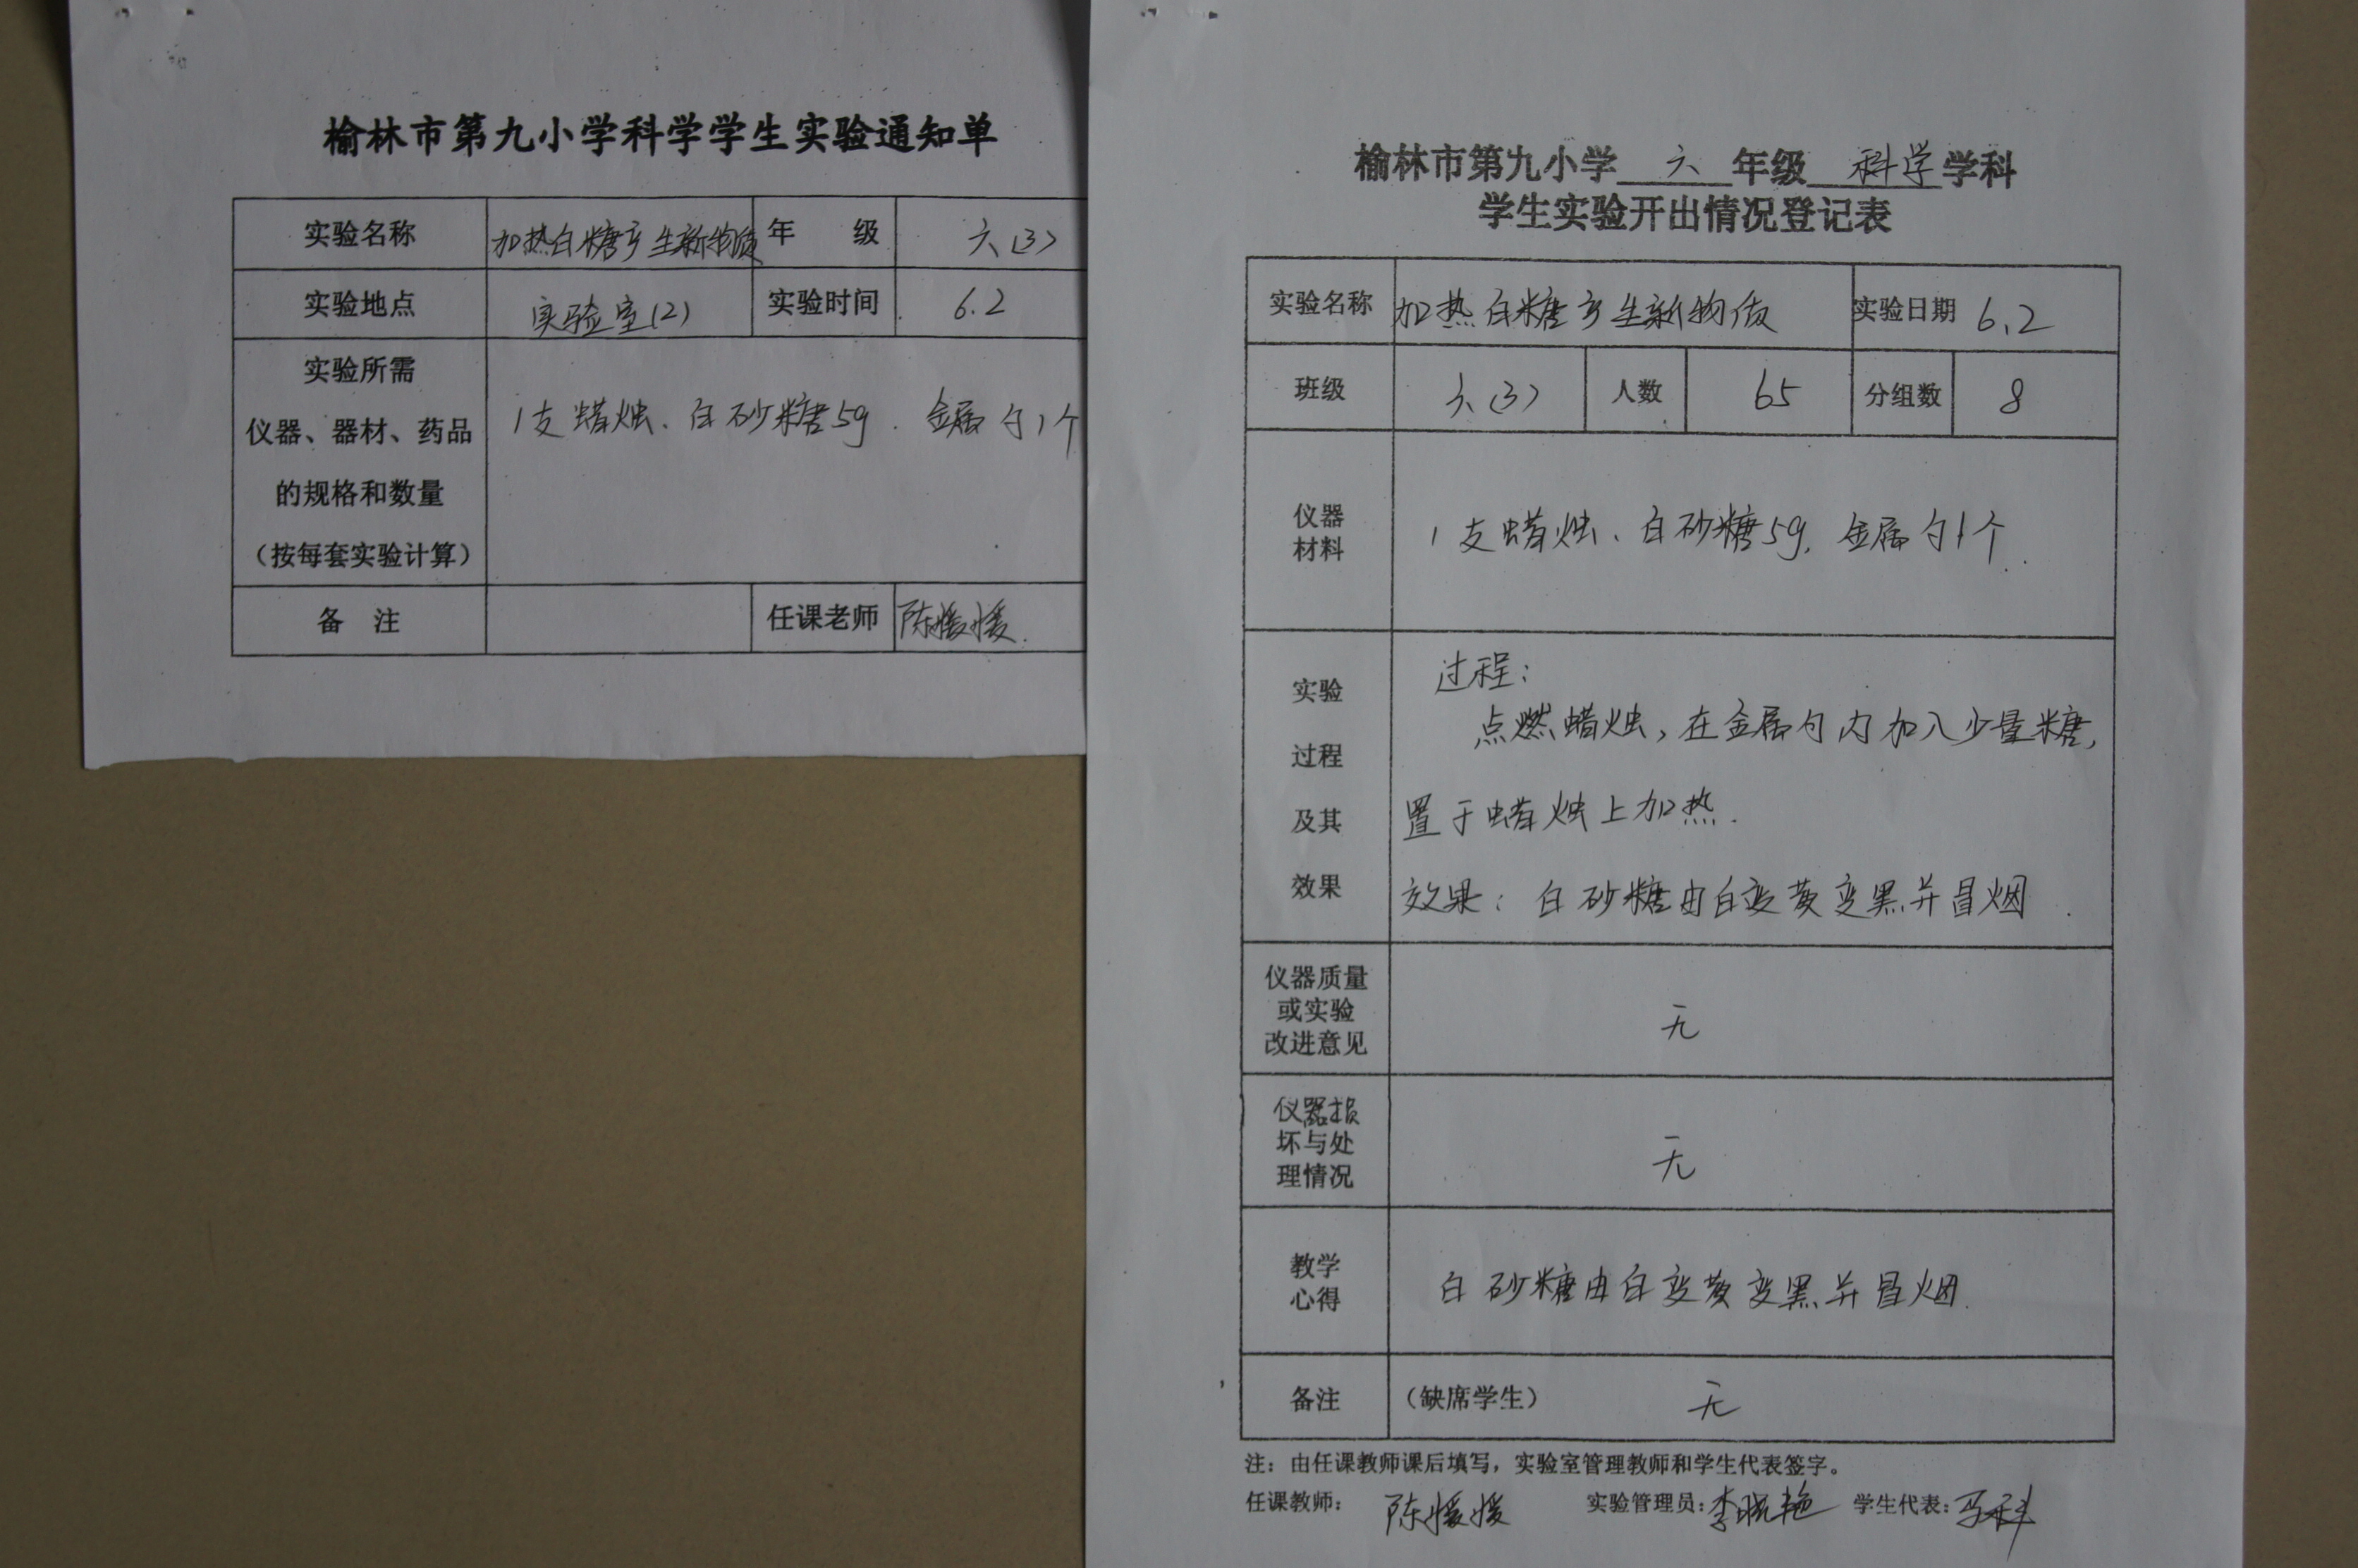 榆林市第九小学科学学生实验通知单
实验名称 加热白糖产生新物质 年 级 六(3)
实验地点 实验室(2) 实验时间 6.2
实验所需
仪器、器材、药品
的规格和数量
(按每套实验计算)
1支蜡烛、白砂糖5g、金属勺1个
备 注 任课老师 陈媛媛
榆林市第九小学 六 年级 科学 学科
学生实验开出情况登记表
实验名称 加热白糖产生新物质 实验日期 6.2
班级 六(3) 人数 65 分组数 8
仪器
材料
1支蜡烛、白砂糖5g,金属勺1个
实验
过程
及其
效果
过程:
点燃蜡烛,在金属勺内加入少量糖,
置于蜡烛上加热.
效果:白砂糖由白变黄变黑并冒烟.
仪器质量
或实验
改进意见
无
仪器损
坏与处
理情况
无
教学
心得
白砂糖由白变黄变黑并冒烟.
备注 (缺席学生) 无
注:由任课教师课后填写,实验室管理教师和学生代表签字。
任课教师: 陈媛媛 实验管理员:李晓艳 学生代表: